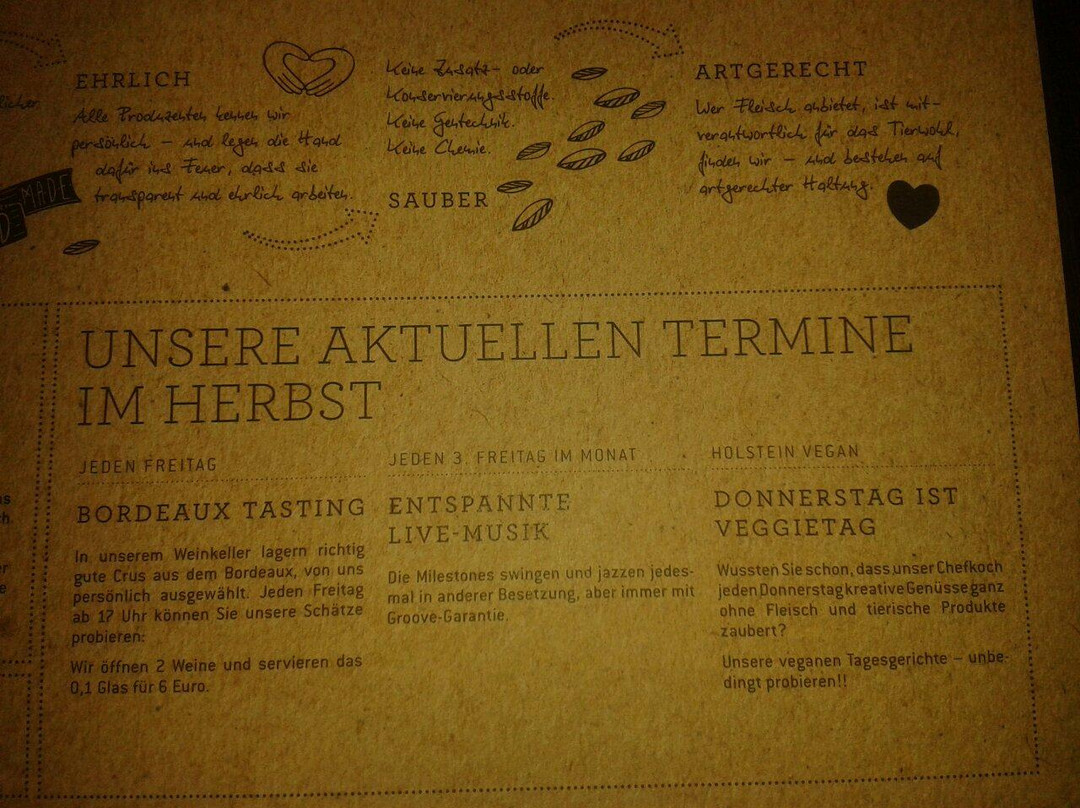 licher.
EHRLICH
Alle Produzenten kennen wir
persönlich – und legen die Hand
dafür ins Feuer, dass sie
transparent und ehrlich arbeiten.
MADE
Keine Zusatz- oder
Konservierungsstoffe.
Keine Gentechnik.
Keine Chemie.
SAUBER
ARTGERECHT
Wer Fleisch anbietet, ist mit-
verantwortlich für das Tierwohl,
finden wir – und bestehen auf
artgerechter Haltung.
UNSERE AKTUELLEN TERMINE
IM HERBST
JEDEN FREITAG
BORDEAUX TASTING
In unserem Weinkeller lagern richtig
gute Crus aus dem Bordeaux, von uns
persönlich ausgewählt. Jeden Freitag
ab 17 Uhr können Sie unsere Schätze
probieren:
Wir öffnen 2 Weine und servieren das
0,1 Glas für 6 Euro.
JEDEN 3. FREITAG IM MONAT
ENTSPANNTE
LIVE-MUSIK
Die Milestones swingen und jazzen jedes-
mal in anderer Besetzung, aber immer mit
Groove-Garantie.
HOLSTEIN VEGAN
DONNERSTAG IST
VEGGIETAG
Wussten Sie schon, dass unser Chefkoch
jeden Donnerstag kreative Genüsse ganz
ohne Fleisch und tierische Produkte
zaubert?
Unsere veganen Tagesgerichte – unbe-
dingt probieren!!